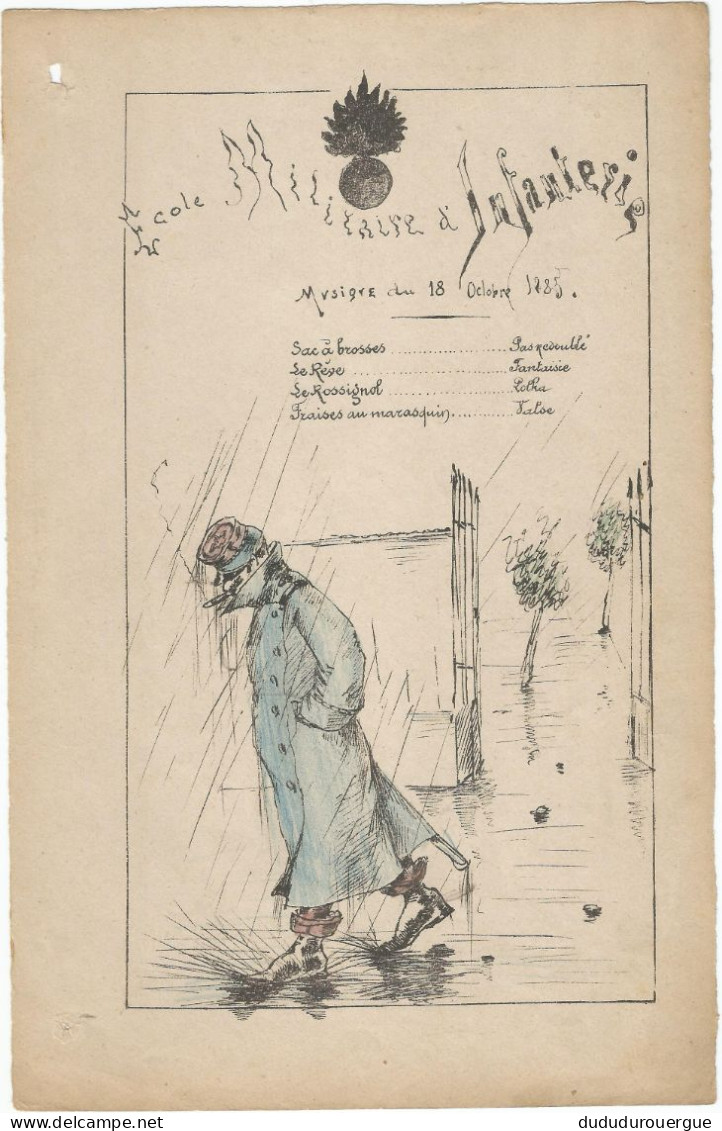 École Militaire d'Infanterie
Mvsiqve du 18 Octobre 1885.
Sac à brosses ........................ Pas redoublé
Le Rêve ........................ Fantaisie
Le Rossignol ........................ Polka
Fraises au marasquin ............ Valse
delcampe.net
dududurouergue